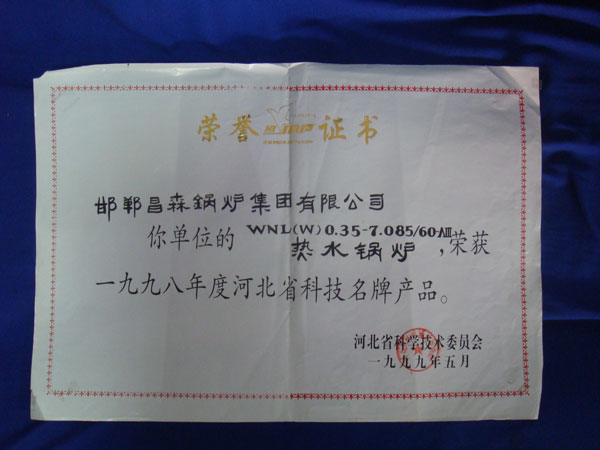 荣誉证书
邯郸昌森锅炉集团有限公司
你单位的 WNL(W)0.35-7.085/60-AⅢ
热水锅炉,荣获
一九九八年度河北省科技名牌产品。
河北省科学技术委员会
一九九九年五月